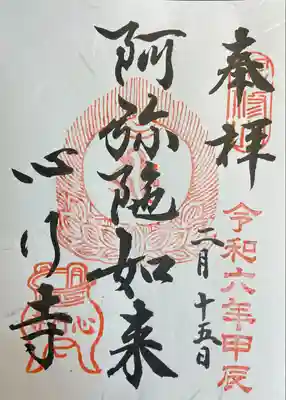 奉拝
令和六年甲辰
二月十五日
阿弥陀如来
心行寺